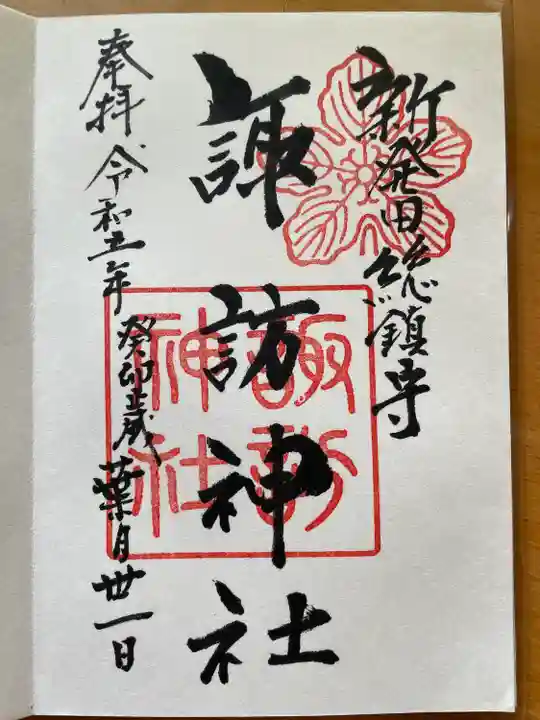 新発田総鎮守
諏訪神社
諏訪神社
奉拝 令和五年 癸卯歳 葉月 丗一日